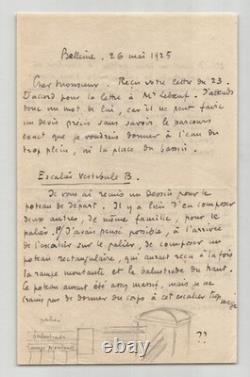 Bellevue, 26 mai 1925
Cher Monsieur. Reçu votre lettre du 23.
D'accord pour la lettre à Mr Lebœuf. J'attends
donc un mot de lui, car il ne peut faire
un devis précis sans savoir le parcours
exact que je voudrais donner à l'eau du
trop plein, ni la place du bassin.
Escalier Vestibule B.
Je vous ai remis un dessin pour le
poteau de départ. Il y a lieu d'en composer
deux autres, de même famille, pour le
palier. J'avais pensé possible, à l'arrivée
de l'escalier sur le palier, de composer un
poteau rectangulaire, qui aurait reçu à la fois
la rampe montante et la balustrade du haut.
Ce poteau aurait été assez massif, mais je ne
crains pas de donner du corps à cet escalier trop
maigre
palier
balustrade
rampe montante
??
© worthpoint.com